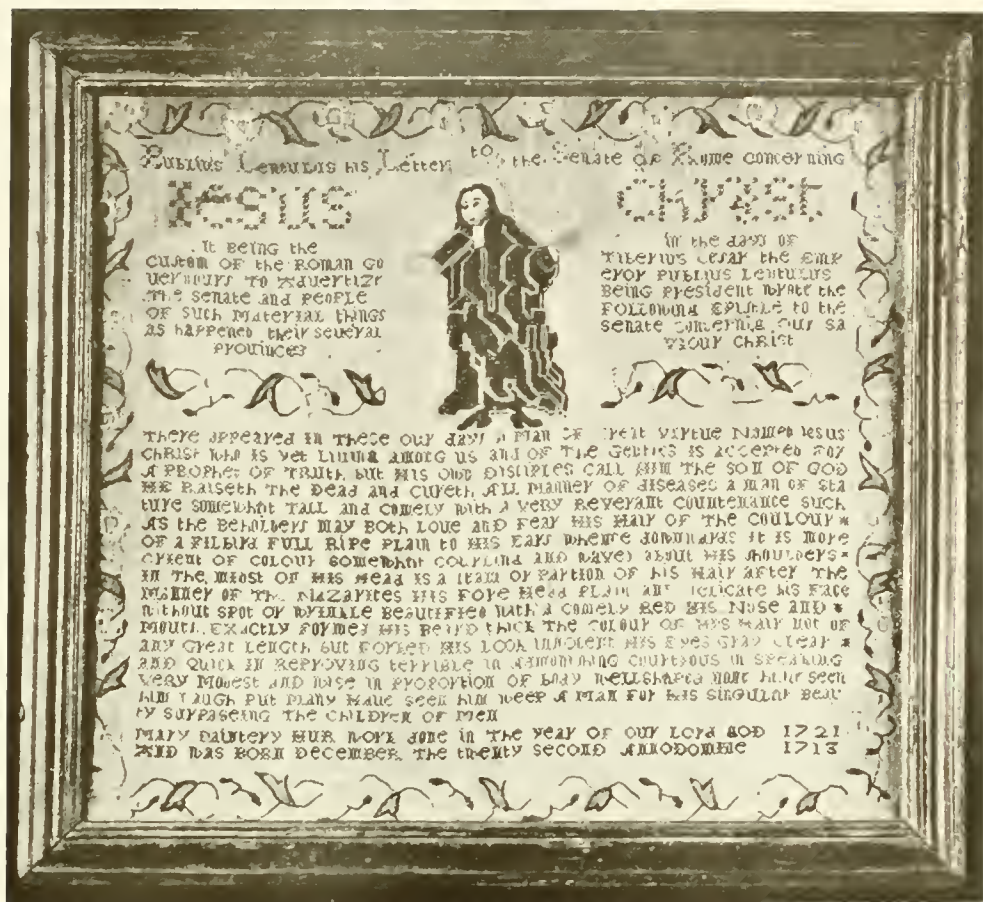 Publius Lentulus his Letter to the Senate of Rome concerning
JESUS CHRIST
It Being the
Custom OF the ROMAN GO
UerNOURS TO Advertize
The Senate and People
OF Such Material things
as happened their seueral
Provinces
In the days of
Tiberius Cesar the Emp
eror Publius Lentulus
Being President wrote the
Following Epistle to the
Senate concernig Our Sa
viour Christ
There appeared in These our days A Man OF Great Virtue Named Iesus
Christ who is yet Liuing among us and OF The Gentils is accepted For
A PROPHet OF TRuth but His Own Disciples call HIM The SON OF GOD
HE Raiseth The Dead and Cureth ALL Manner OF diseases a man of sta
ture somewhat Tall and comely with a very Reverant countenance such
As the Beholders may Both Loue and Fear His Hair OF The Coulour *
OF A FILBIRD FULL Ripe Plain to His Ears whence downwards it is more
orient OF colour somewhat and waves about His shoulders *
In The midst OF His Head is a seam or Partion OF his Hair after The
Manner OF The Nazarites His Fore Head Plain and Delicate his Face
without spot or wrinkle Beautified with a comely Red His Nose and *
Mouth Exactly Formed His Beard thick The colour OF His Hair not of
any Great Length but Forked His Look innocent His Eyes Gray Clear *
and Quick In Reproving terrible in Admonishing courtious in speaking
very Modest and wise in Proportion of body wellshaped none haue seen
him Laugh but many Haue seen him weep A Man For His singular Beau
ty surpaseing The children OF Men
Mary Daintery Hur work done in The year OF Our Lord GOD 1721
AND was Born December The twenty second 1713